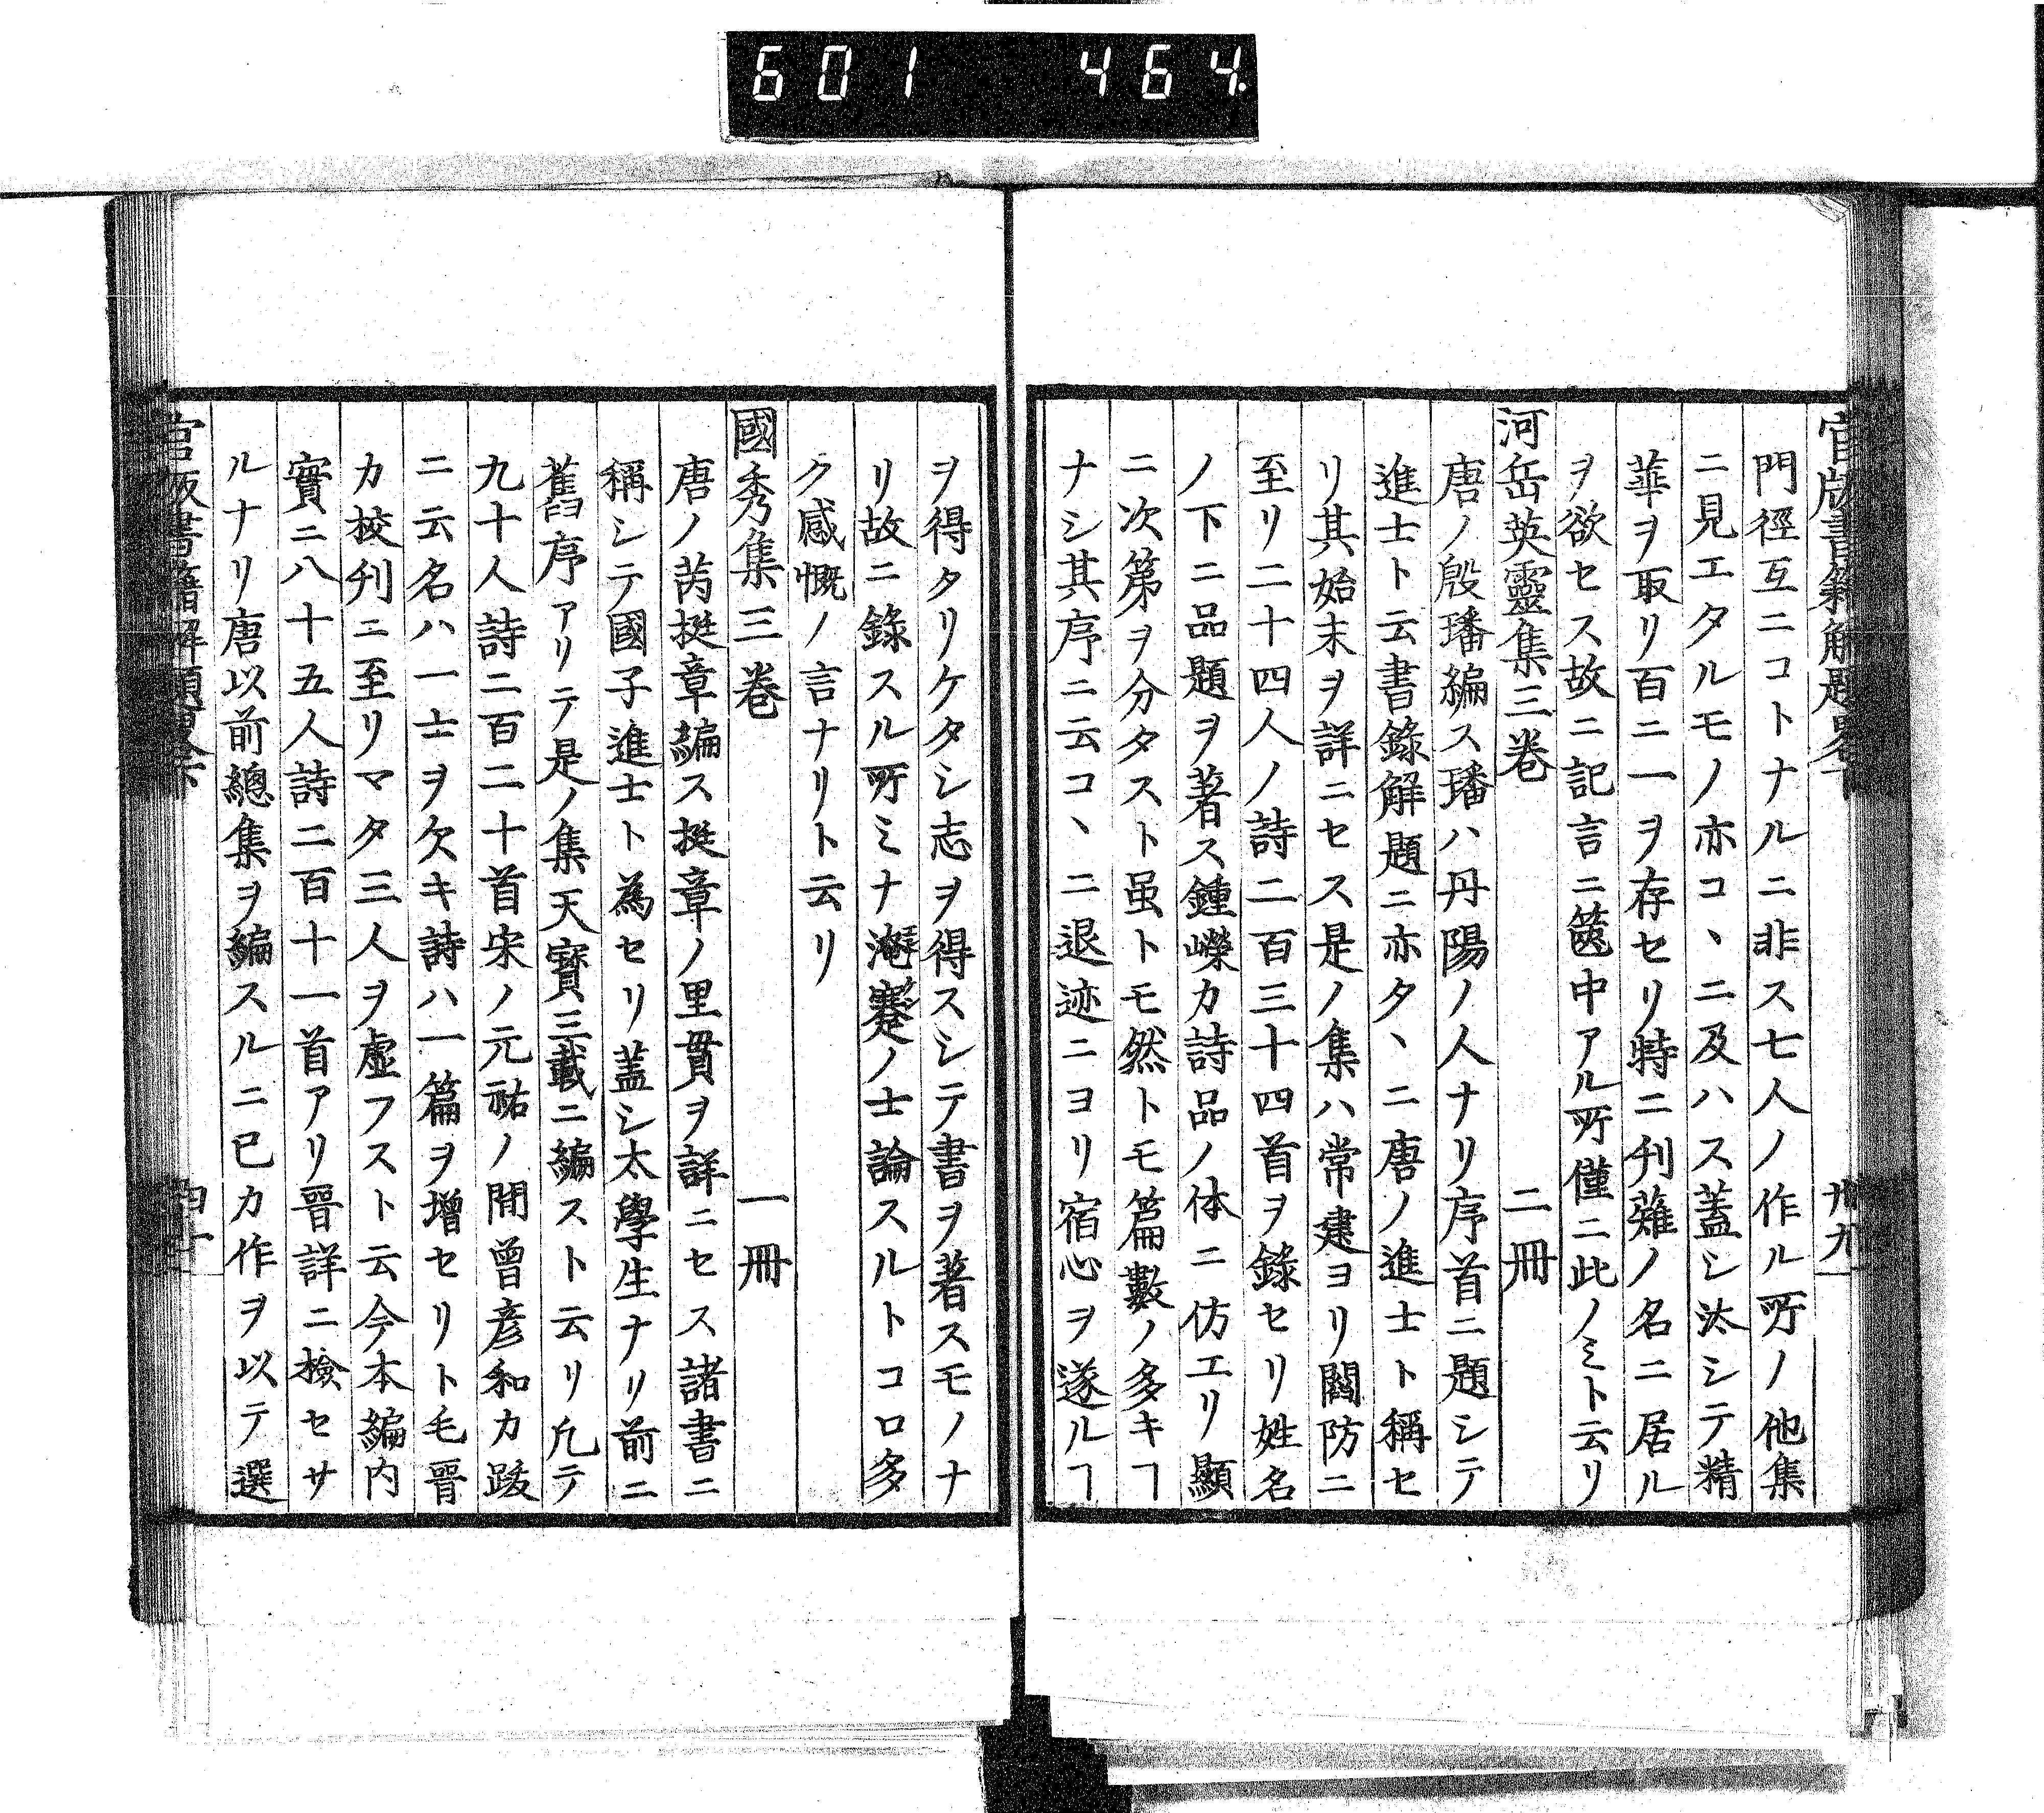 601 464
官版書籍解題畧下 卅九
門徑互ニコトナルニ非ス七人ノ作ル所ノ他集
ニ見エタルモノ亦コヽニ及ハス蓋シ汰シテ精
華ヲ取リ百ニ一ヲ存セリ特ニ刋薙ノ名ニ居ル
ヲ欲セス故ニ記言ニ篋中アル所僅ニ此ノミト云リ
河岳英靈集三巻 二冊
唐ノ殷璠編ス璠ハ丹陽ノ人ナリ序首ニ題シテ
進士ト云書錄解題ニ亦タヽニ唐ノ進士ト稱セ
リ其始末ヲ詳ニセス是ノ集ハ常建ヨリ閻防ニ
至リ二十四人ノ詩二百三十四首ヲ錄セリ姓名
ノ下ニ品題ヲ著ス鍾嶸カ詩品ノ体ニ仿エリ顯
ニ次第ヲ分タスト虽トモ然トモ篇數ノ多キヿ
ナシ其序ニ云コヽニ退迹ニヨリ宿心ヲ遂ルヿ
ヲ得タリケタシ志ヲ得スシテ書ヲ著スモノナ
リ故ニ錄スル所ミナ淹蹇ノ士論スルトコロ多
ク感慨ノ言ナリト云リ
國秀集三巻 一冊
唐ノ芮挺章編ス挺章ノ里貫ヲ詳ニセス諸書ニ
稱シテ國子進士ト為セリ蓋シ太學生ナリ前ニ
舊序アリテ是ノ集天寶三載ニ編スト云リ凢テ
九十人詩二百二十首宋ノ元祐ノ間曾彦和カ跋
ニ云名ハ一士ヲ欠キ詩ハ一篇ヲ增セリト毛晋
カ校刋ニ至リマタ三人ヲ虚フスト云今本編内
實ニ八十五人詩二百十一首アリ晋詳ニ檢セサ
ルナリ唐以前總集ヲ編スルニ已カ作ヲ以テ選
官版書籍解題畧下 四十